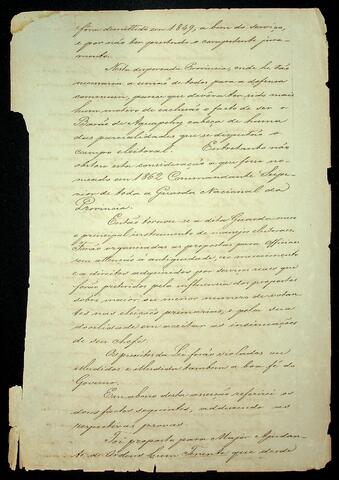 fôra demettido em 1849, a bem do serviço,
e por não ter prestado o competente jura-
mento.
Nesta deporada Provincia, onde he tão
necessaria a união de todos para a defensa
commum, parece que devêra ter sido mais
hum motivo de exclusão o facto de ser o
Barão de Aguapehy cabeça de huma
das parcialidades que se disputão o
campo eleitoral. Entretanto não
obteve esta consideração a que fosse no-
meado em 1862 Commandante Supe-
rior de toda a Guarda Nacional da
Provincia.
Então tornou-se a dita Guarda seu
principal instrumento de manejos eleitoraes.
Forão organisadas as propostas para Officiaes
sem attenção á antiguidade, ao merecimento
e a direitos adqueridos por serviços reaes que
forão preteridos pela influencia dos propostos
sobre maior, ou menor numero de votan-
tes nas eleições primarias, e pela sua
docilidade em aceitar as insinuações
de seu chefe.
Os preceitos da Lei forão violados ou
illudidos e illudida tambem a boa fé do
Governo.
Em abono desta asserção referirei os
dous factos seguintes, adduzindo as
respectivas provas.
Foi proposto para Major Ajudan-
te de Ordens hum Tenente que desde